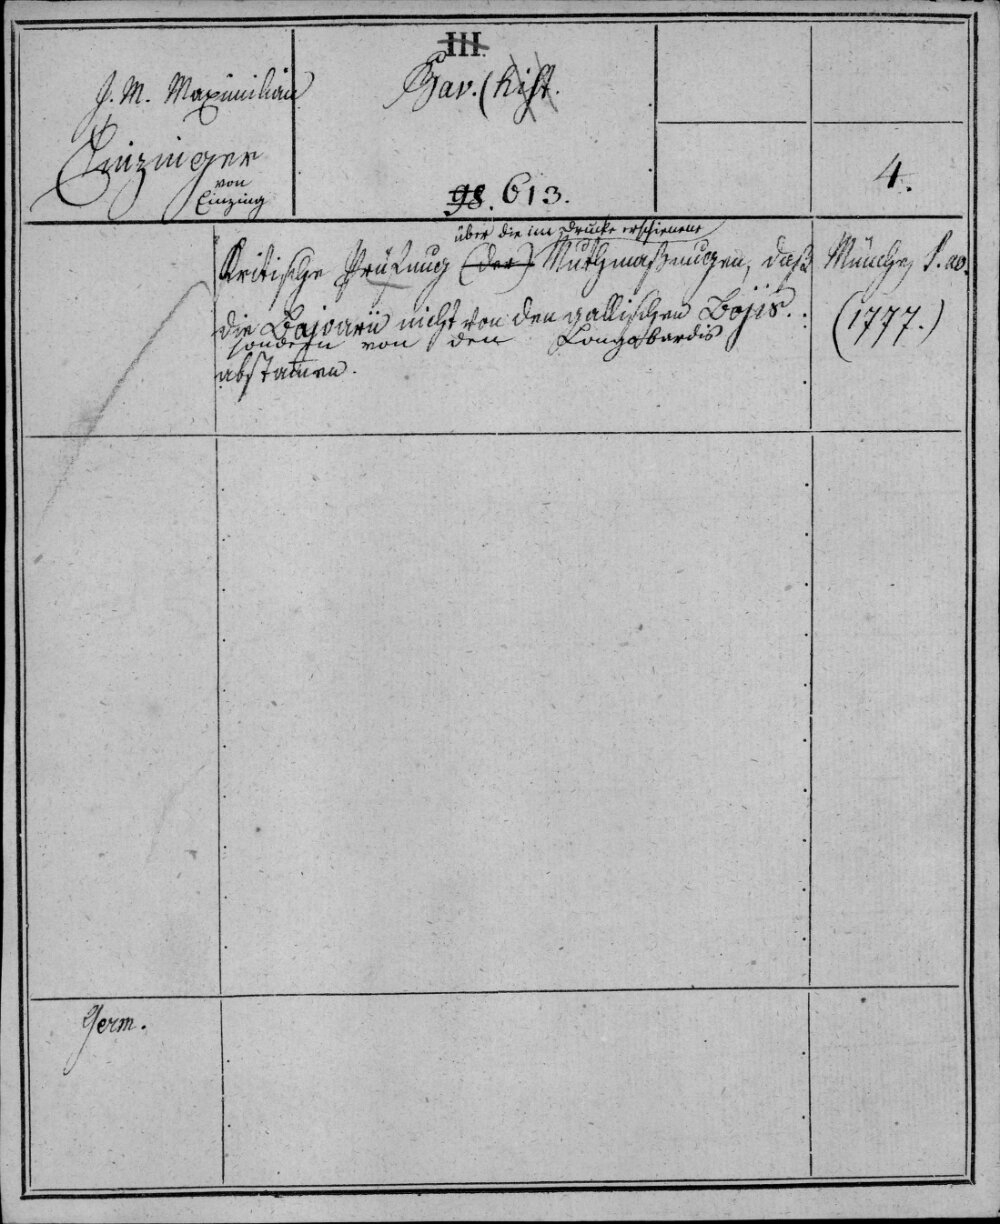 III.
J. M. Maximilian
Bav. (hist.
Einzinger
von
Einzing
4.
98. 613.
über die im Drucke erschienene
Kritische Prüfung (der) Muthmaßungen, daß
München s. ao.
die Bajoarii nicht von den gallischen Bojis.
(1777.)
sondern von den Longobardis
abstamen.
Germ.